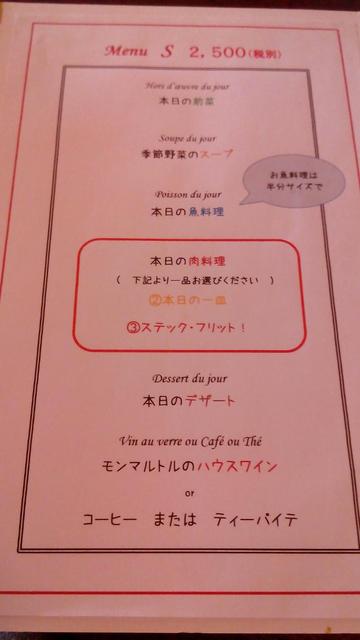 Menu S 2,500(税別)
Hors d'œuvre du jour
本日の前菜
Soupe du jour
季節野菜のスープ
お魚料理は
半分サイズで
Poisson du jour
本日の魚料理
本日の肉料理
( 下記より一品お選びください )
②本日の一皿
③ステック・フリット!
Dessert du jour
本日のデザート
Vin au verre ou Café ou Thé
モンマルトルのハウスワイン
or
コーヒー または ティーバイテ